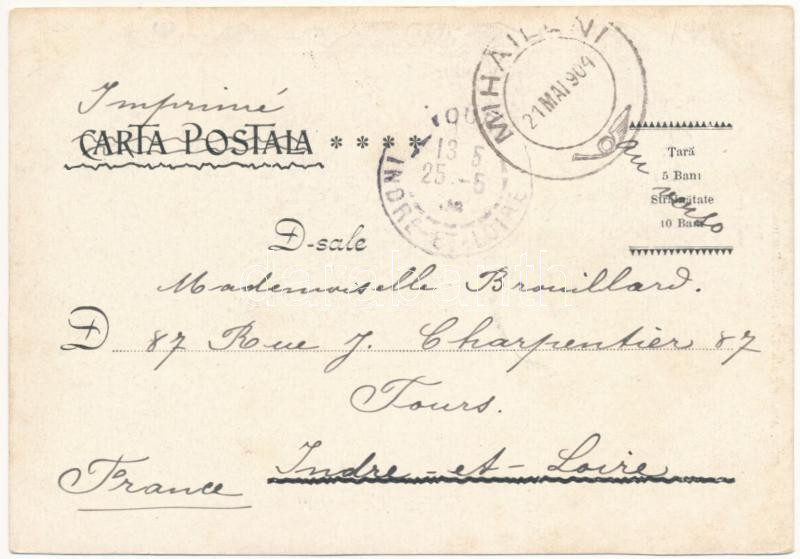 Imprimé
CARTA POSTALA ****
MIHAILENI
21 MAI 904
TOU
13 5
25 -5
INDRE-ET-LOIRE
Țară
5 Bani
Străinătate
10 Bani
au verso
D-sale
Mademoiselle Brouillard.
D 87 Rue J. Charpentier 87
Tours.
Indre-et-Loire
France